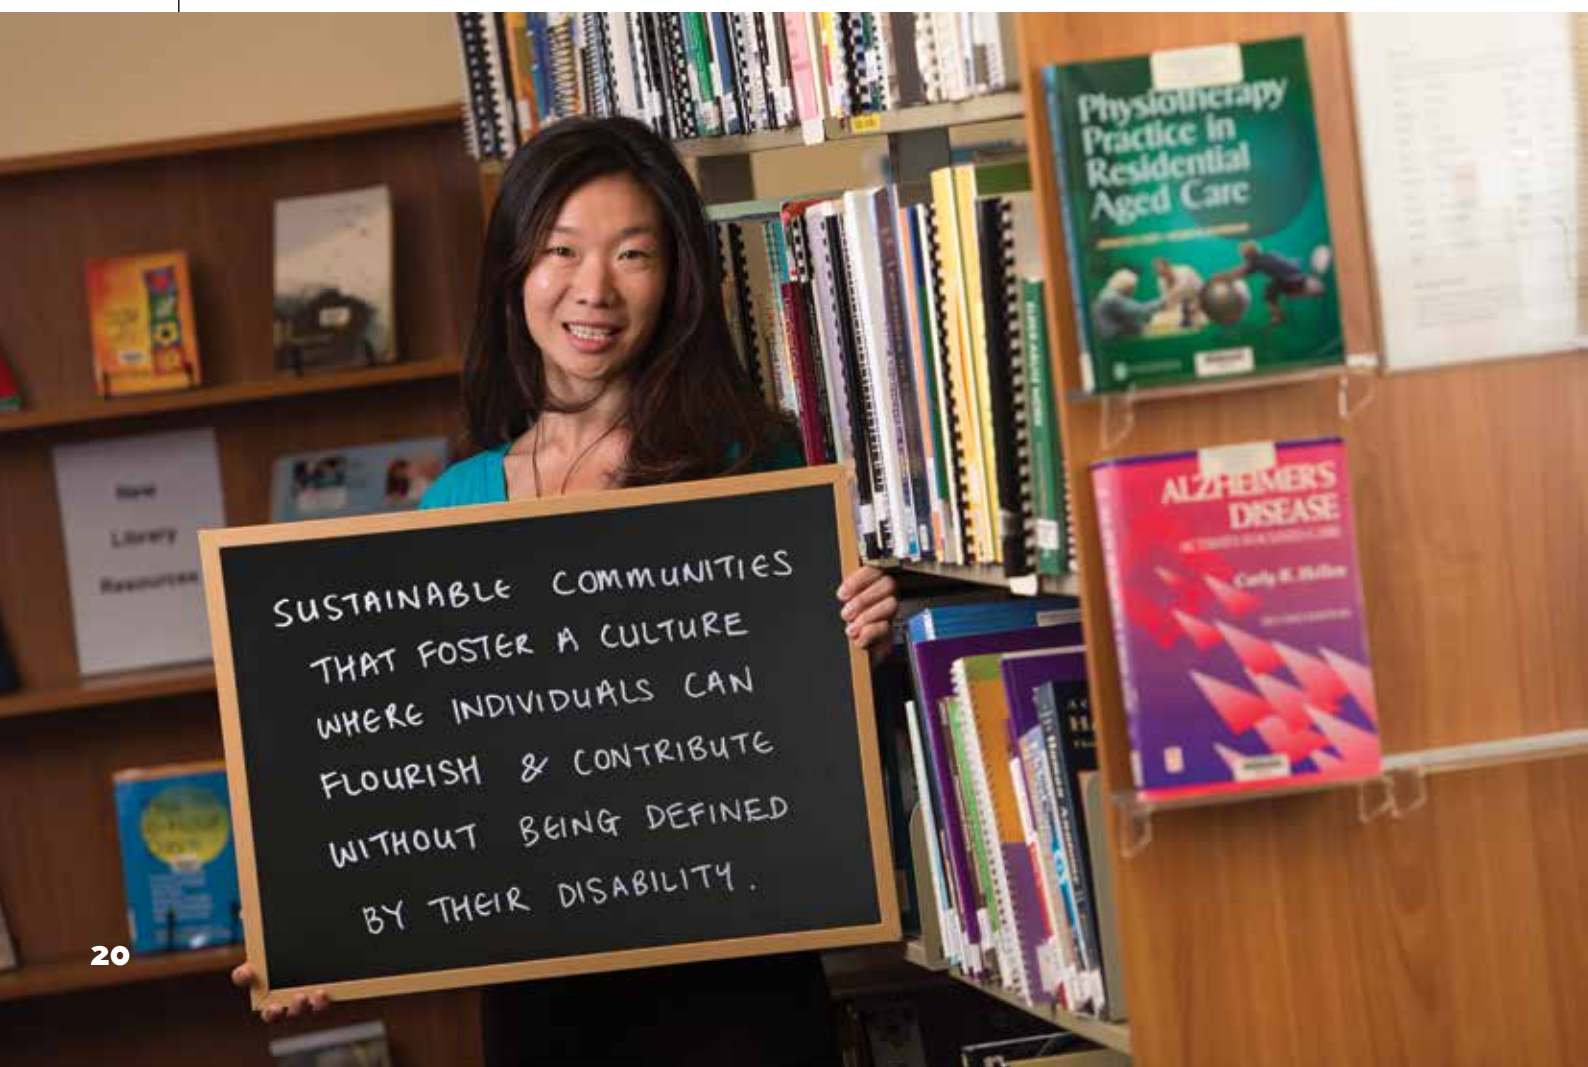 Physiotherapy
Practice in
Residential
Aged Care
ALZHEIMER'S
DISEASE
New
Library
Resources
SUSTAINABLE COMMUNITIES
THAT FOSTER A CULTURE
WHERE INDIVIDUALS CAN
FLOURISH & CONTRIBUTE
WITHOUT BEING DEFINED
BY THEIR DISABILITY.
20